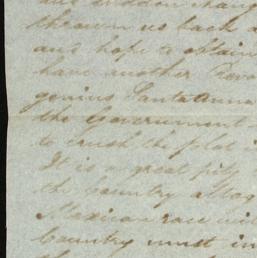 and sudden chang
thrown us back a
and hope to obtain
have another Revo
genius Santa Anna
the Government
to crush the plot i
It is a great pity
the Country altog
Mexican race wi
Country must in